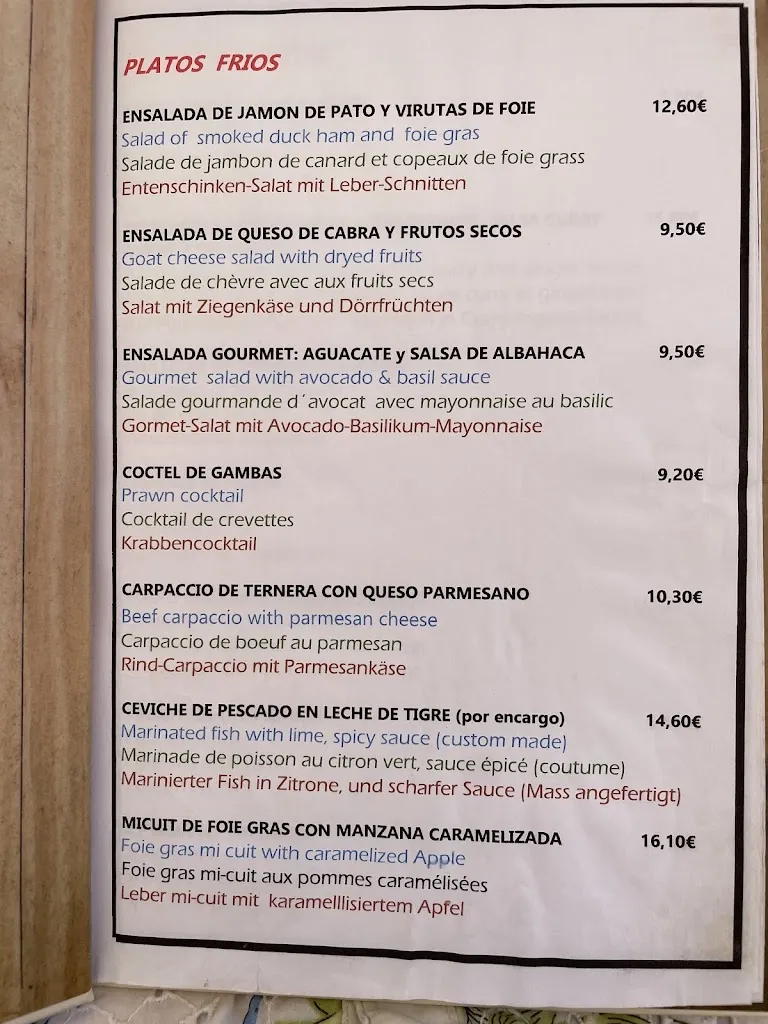 PLATOS FRIOS
ENSALADA DE JAMON DE PATO Y VIRUTAS DE FOIE 12,60€
Salad of smoked duck ham and foie gras
Salade de jambon de canard et copeaux de foie grass
Entenschinken-Salat mit Leber-Schnitten
ENSALADA DE QUESO DE CABRA Y FRUTOS SECOS 9,50€
Goat cheese salad with dryed fruits
Salade de chèvre avec aux fruits secs
Salat mit Ziegenkäse und Dörrfrüchten
ENSALADA GOURMET: AGUACATE y SALSA DE ALBAHACA 9,50€
Gourmet salad with avocado & basil sauce
Salade gourmande d´avocat avec mayonnaise au basilic
Gormet-Salat mit Avocado-Basilikum-Mayonnaise
COCTEL DE GAMBAS 9,20€
Prawn cocktail
Cocktail de crevettes
Krabbencocktail
CARPACCIO DE TERNERA CON QUESO PARMESANO 10,30€
Beef carpaccio with parmesan cheese
Carpaccio de boeuf au parmesan
Rind-Carpaccio mit Parmesankäse
CEVICHE DE PESCADO EN LECHE DE TIGRE (por encargo) 14,60€
Marinated fish with lime, spicy sauce (custom made)
Marinade de poisson au citron vert, sauce épicé (coutume)
Marinierter Fish in Zitrone, und scharfer Sauce (Mass angefertigt)
MICUIT DE FOIE GRAS CON MANZANA CARAMELIZADA 16,10€
Foie gras mi cuit with caramelized Apple
Foie gras mi-cuit aux pommes caramélisées
Leber mi-cuit mit karamelllisiertem Apfel